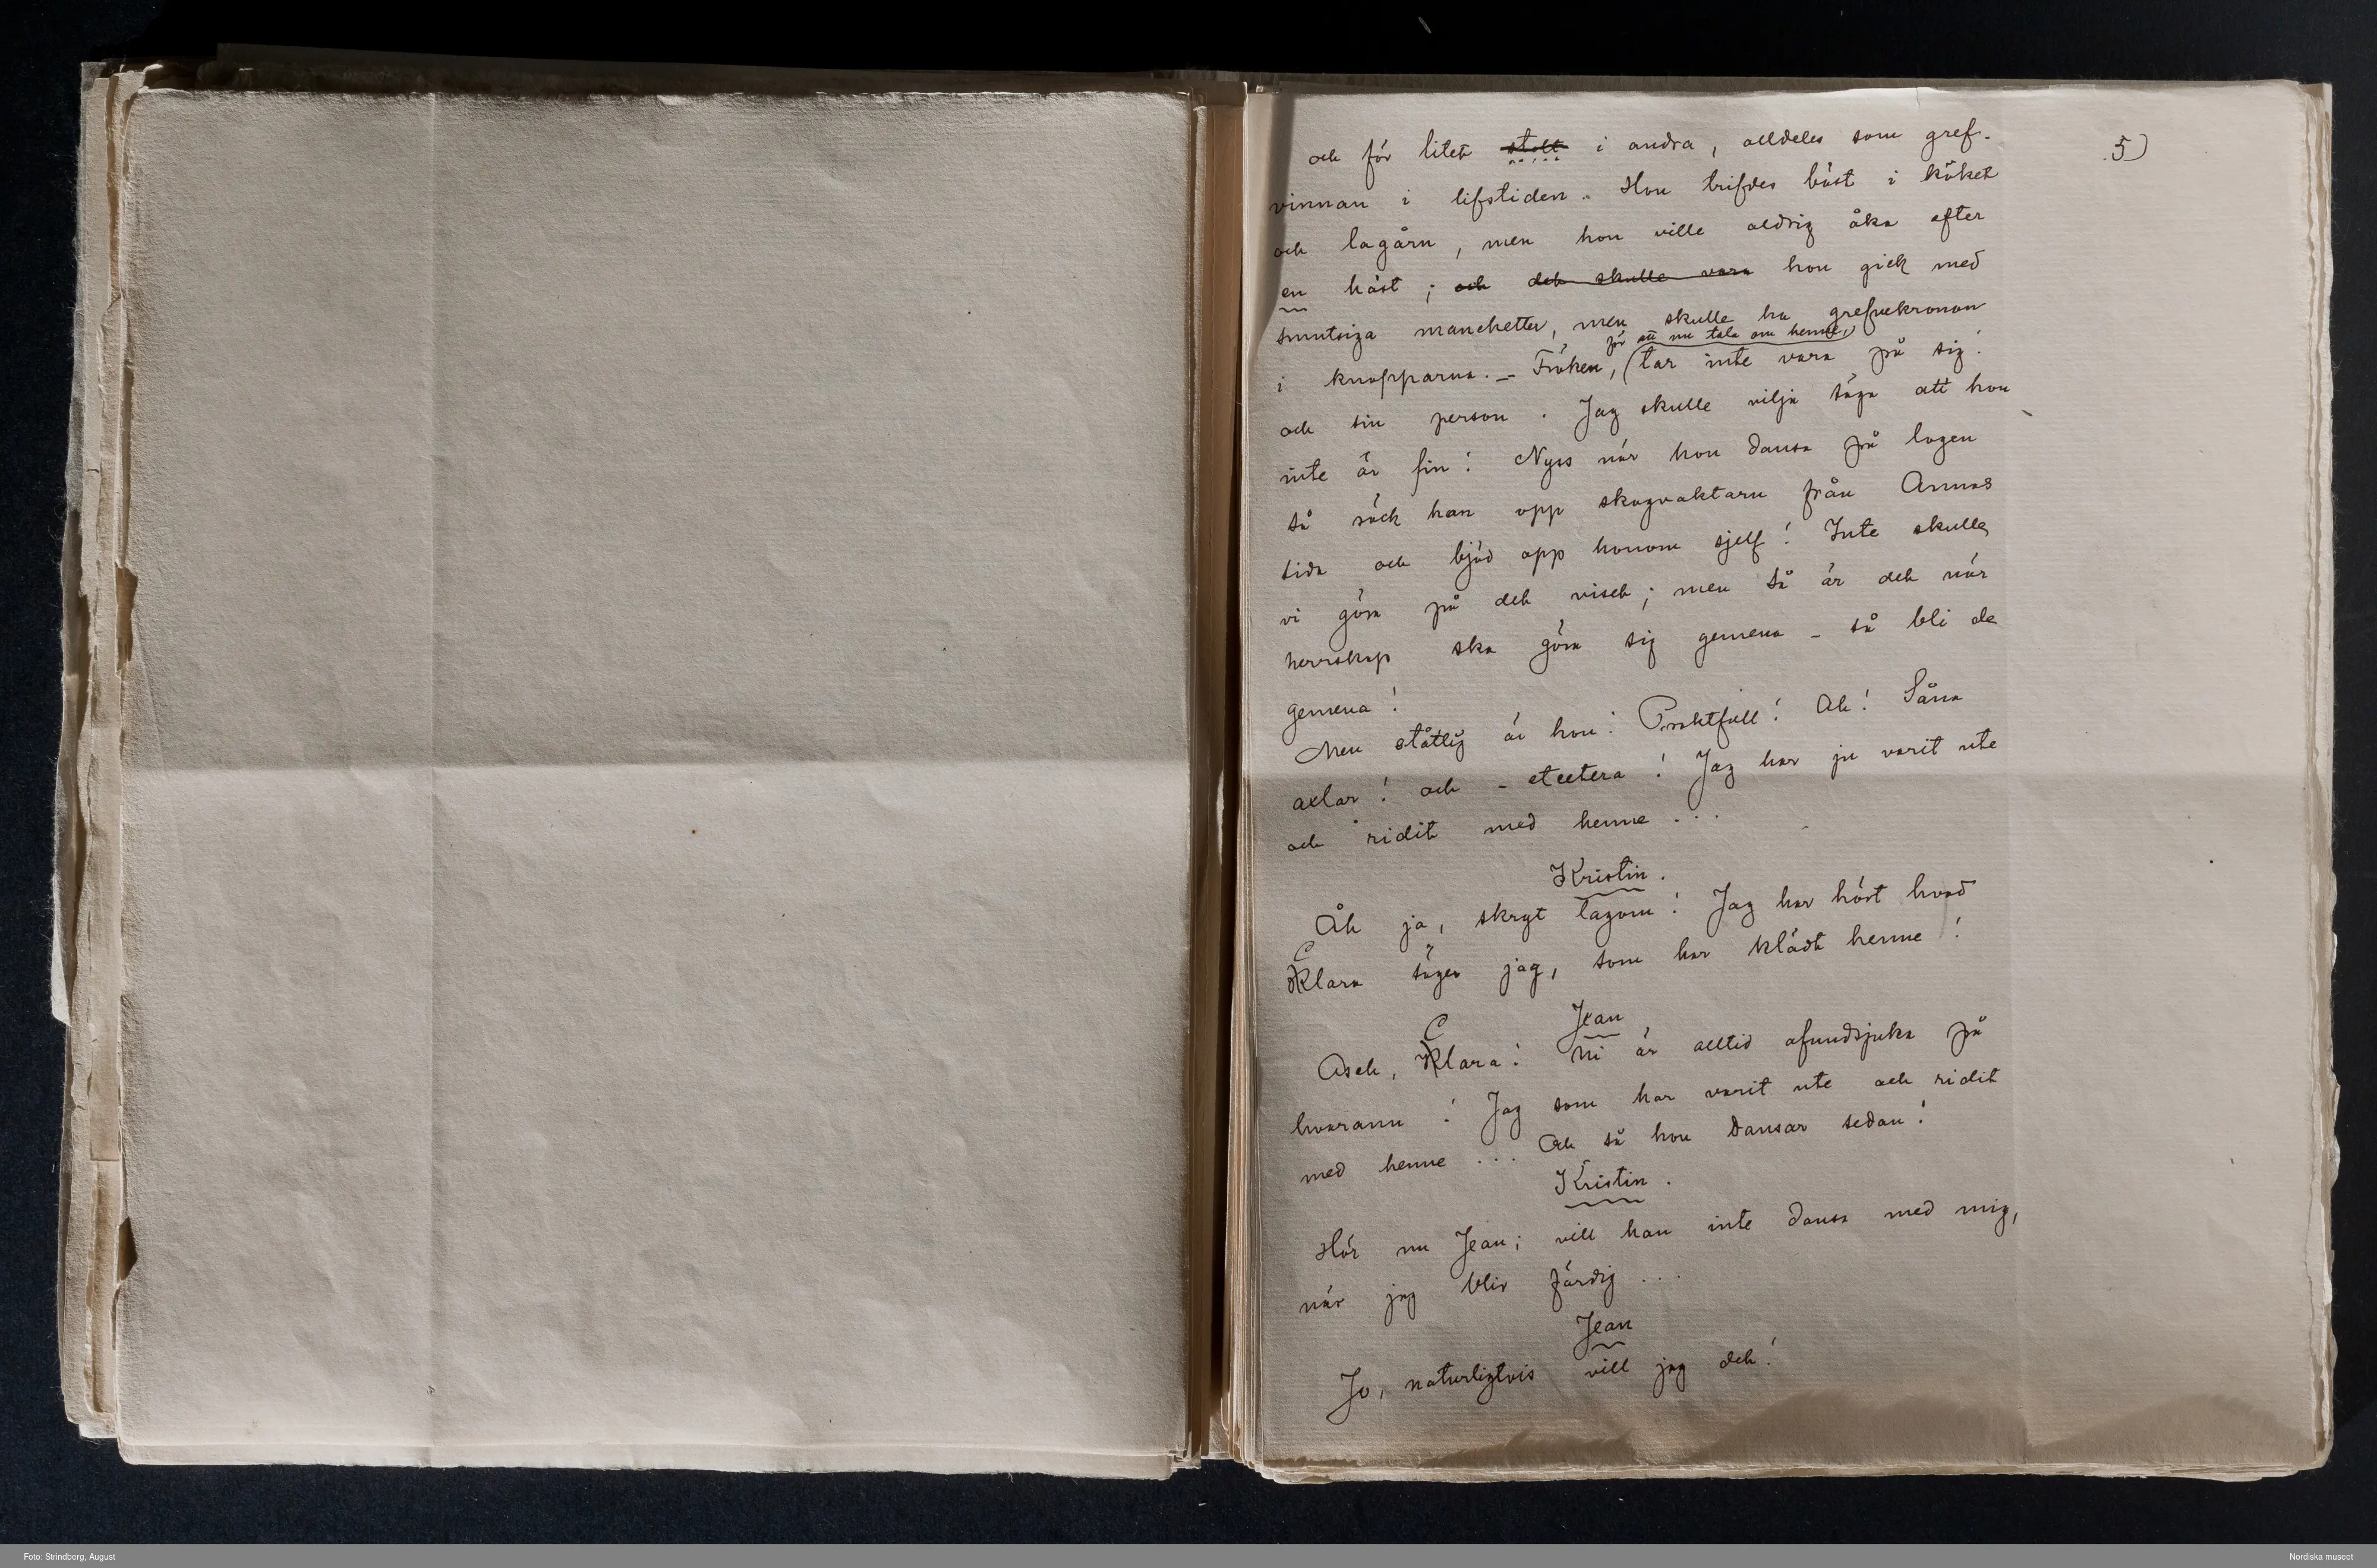 5)
och för litet stolt i andra, alldeles som gref-
vinnan i lifstiden. Hon trifdes bäst i köket
och lagårn, men hon ville aldrig åka efter
en häst; och det skulle vara hon gick med
smutsiga manchetter, men skulle ha grefvekronan
för att nu tala om henne,
i knapparna. – Fröken, (tar inte vara på sig
och sin person. Jag skulle vilja säga att hon
inte är fin! Nyss när hon dansa på logen
så röck han opp skogvaktarn från Annas
sida och bjöd opp honom sjelf! Inte skulle
vi göra på det viset; men så är det när
herrskap ska göra sig gemena – så bli de
gemena!
Men ståtlig är hon! Praktfull! Ah! Såna
axlar! och – etcetera! Jag har ju varit ute
och ridit med henne ...
Kristin.
Åh ja, skryt lagom! Jag har hört hvad
Clara säger jag, som har klädt henne!
Jean
Asch, Clara! Ni är alltid afundsjuka på
hvarann! Jag som har varit ute och ridit
med henne ... Och så hon dansar sedan!
Kristin.
Hör nu Jean; vill han inte dansa med mig,
när jag blir färdig ...
Jean
Jo, naturligtvis vill jag det!
Foto: Strindberg, August
Nordiska museet